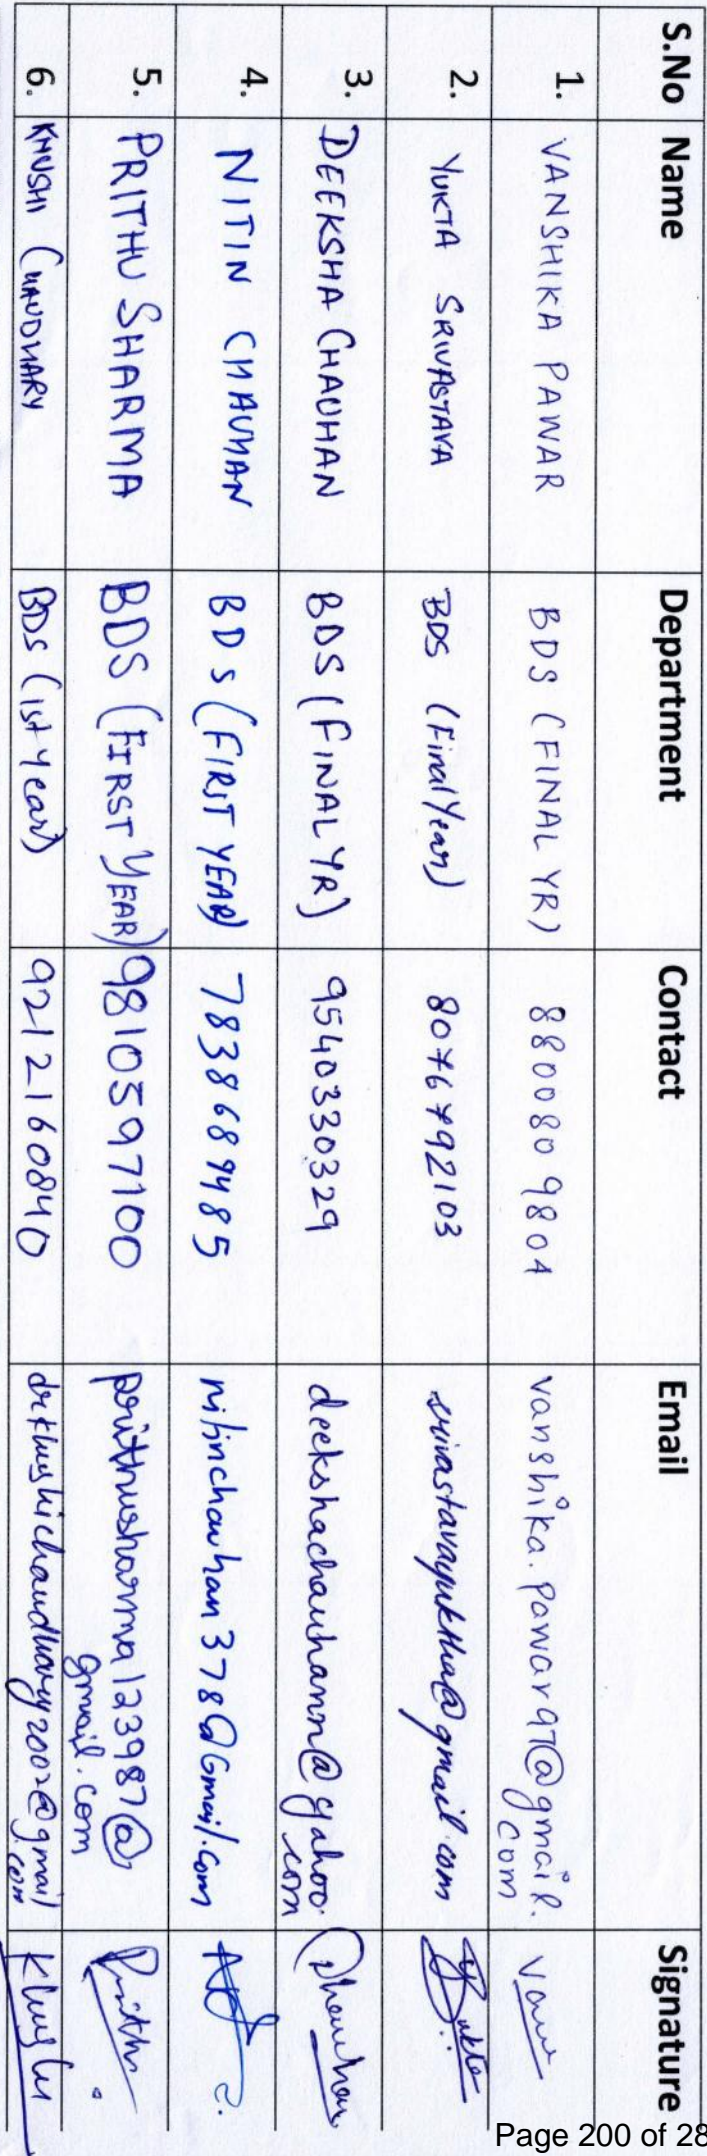 S.No Name Department Contact Email Signature
1. VANSHIKA PAWAR BDS (FINAL YR) 8800809804 vanshika.pawar97@gmail.com Vans
2. YUKTA SRIVASTAVA BDS (Final Year) 8076792103 srivastavayuktha@gmail.com Yukta
3. DEEKSHA CHAUHAN BDS (FINAL YR) 9540330329 deekshachauhann@yahoo.com Dhauhan
4. NITIN CHAUHAN BDS (FIRST YEAR) 7838689485 nitinchauhan378@Gmail.com
5. PRITHU SHARMA BDS (FIRST YEAR) 9810597100 prithusharma123987@gmail.com Prithu
6. KHUSHI CHAUDHARY BDS (1st year) 9212160840 drkhushichaudhary2002@gmail.com Khushi
Page 200 of 28